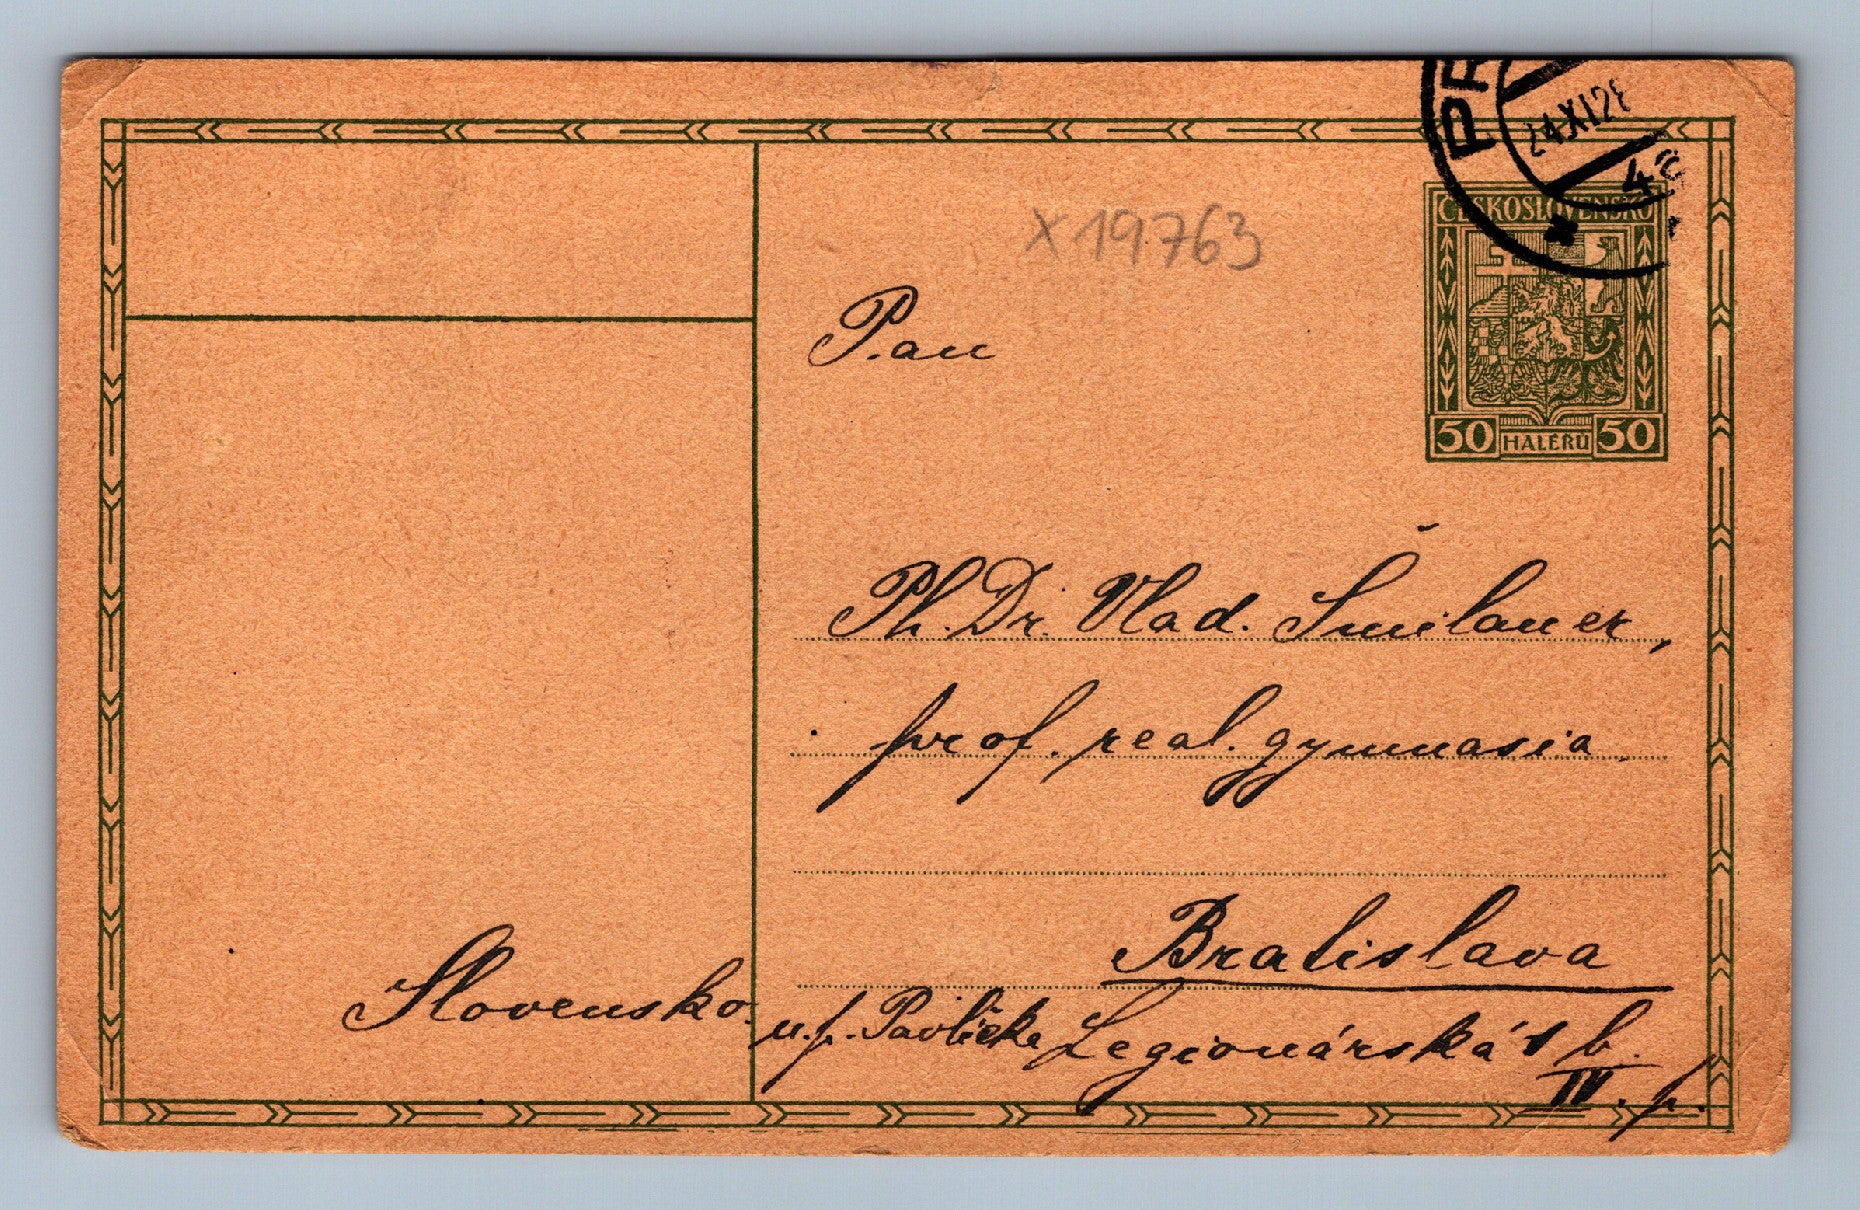 PR
24.XI.2
4c
X19.763
ČESKOSLOVENSKO
50 HALÉŘŮ 50
Pan
Ph. Dr. Vlad. Šmilauer,
prof. real. gymnasia
Bratislava
Slovensko. u. p. Pavlíčka Legionárská 1 b.
IV. p.